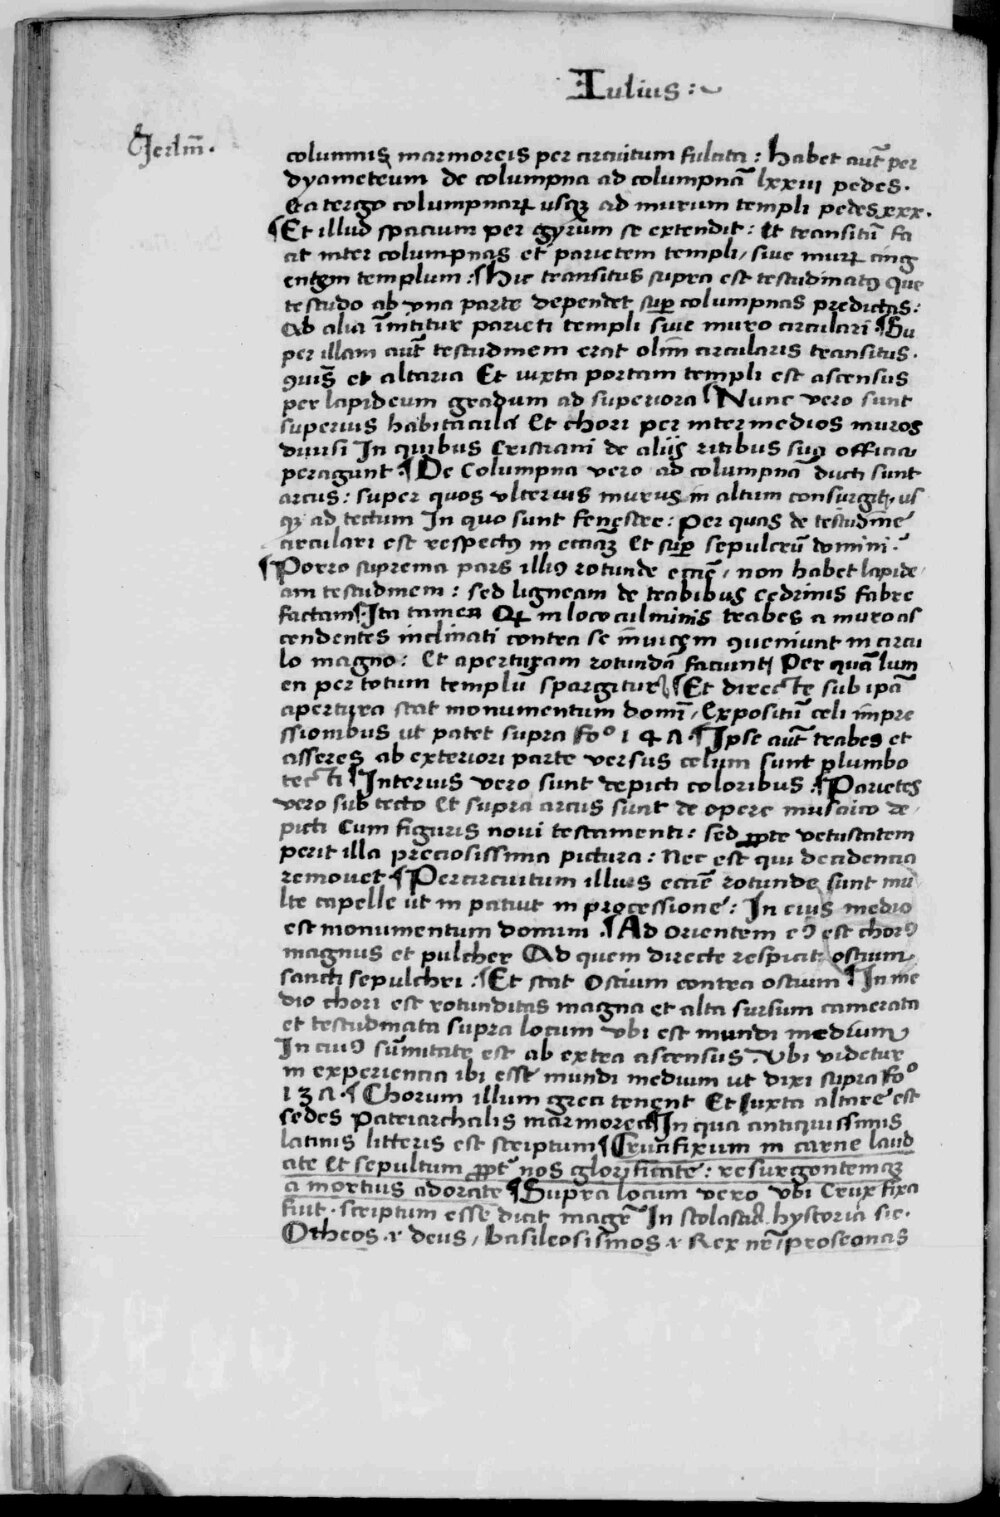 Iulius :~
Jerlm̄.
columnis marmoreis per circuitum fulcita : habet aut̄ per
dyametrum de columpna ad columpnā lxxiii pedes.
Ea tergo columpnaꝝ usqꝫ ad murum templi pedes xxx.
¶Et illud spacium per gyrum se extendit : Et transitū fa
cit inter columpnas et parietem templi, siue muꝝ cing
entem templum : ¶hic transitus supra est testudinatꝰ que
testudo ab vna parte dependet suꝑ columpnas predictas :
Ab alia īnititur parieti templi siue muro circulari ¶Su
per illam aut̄ testudinem erat olim circularis transitus.
ꝯuiꝰ et altaria Et iuxta portam templi est ascensus
per lapideum gradum ad superiora ¶Nunc vero sunt
superius habitacula Et chori per intermedios muros
diuisi In quibus Cristiani de aliis ritibus sua officia
peragunt : ¶De Columpna vero ad columpnā ducti sunt
arcus : super quos vlterius murus in altum consurgit, us
qꝫ ad tectum In quo sunt fenestre : Per quas de testudine
circulari est respectꝰ in eccīaꝫ Et suꝑ sepulcrū domini :
¶Porro suprema pars illiꝰ rotunde eccīe, non habet lapide,
am testudinem : sed ligneam de trabibus cedrinis fabre
factam ¶Ita tamen ꝙ in loco culminis trabes a muro as
cendentes inclinati contra se inuicem ꝯueniunt in circu
lo magno : Et aperturam rotundā faciunt, Per quā lum
en per totum templū spargitur ¶Et directe sub ipā
apertura stat monumentum domī, Expositū celi impre
ssionibus ut patet supra foº 14 A. ¶Ipse aut̄ trabes et
asseres ab exteriori parte versus celum sunt plumbo
tecti ¶Interius vero sunt depicti coloribus : ¶Parietes
vero sub tecto Et supra arcus sunt de opere musaico de,
picti Cum figuris noui testamenti : sed ꝓpte vetustatem
perit illa preciosissima pictura : Nec est qui decidentia
remouet ¶Per circuitum illius eccīe rotunde sunt mu
lte capelle ut in patuit in processione : In eius medio
est monumentum domini . ¶Ad Orientem eꝰ est chorꝰ
magnus et pulcher Ad quem directe respicit ostium
sancti sepulchri : ¶Et stat Ostium contra ostium ¶In me
dio chori est rotunditas magna et alta sursum camerata
et testudinata supra locum vbi est mundi medium
In cuiꝰ su͞mitate est ab extra ascensus, Vbi videtur
in experiencia ibi esse mundi medium ut dixi supra foº
13 A. ¶Chorum illum greci tenent Et Iuxta altare est
sedes Patriarchalis marmorea ¶In qua antiquissimis
latinis litteris est scriptum ¶Crucifixum in carne laud
ate Et sepultum ꝓpt' nos glorificate : resurgentemqꝫ
a mortuis adorate ¶Supra locum vero vbi Crux fixa
fuit . scriptum esse dicit magr̄ In scolastica hystoria sic.
Otheos . r deus, basileosismos . r Rex nr̄, proseonas